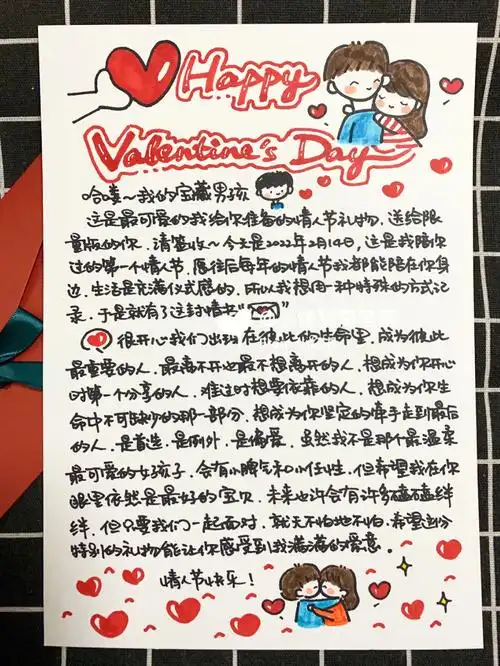 Happy
Valentine's Day
哈喽~我的宝藏男孩
这是最可爱的我给你准备的情人节礼物，送给限
量版的你，请签收~今天是2022年2月14日，这是我陪你
过的第一个情人节，愿往后每年的情人节我都能陪在你身
边，生活是充满仪式感的，所以我想用一种特殊的方式记
录，于是就有了这封情书“ ”
很开心我们出现在彼此的生命里，成为彼此
最重要的人，最离不开也最不想离开的人，想成为你开心
时第一个分享的人，难过时想要依靠的人，想成为你生
命中不可缺少的那一部分，想成为你坚定的牵手走到最后
的人，是首选，是例外，是偏爱，虽然我不是那个最温柔
最可爱的女孩子，会有小脾气和小任性，但希望我在你
眼里依然是最好的宝贝，未来也许会有许多磕磕绊
绊，但只要我们一起面对，就天不怕地不怕，希望这份
特别的礼物能让你感受到我满满的爱意。
情人节快乐！